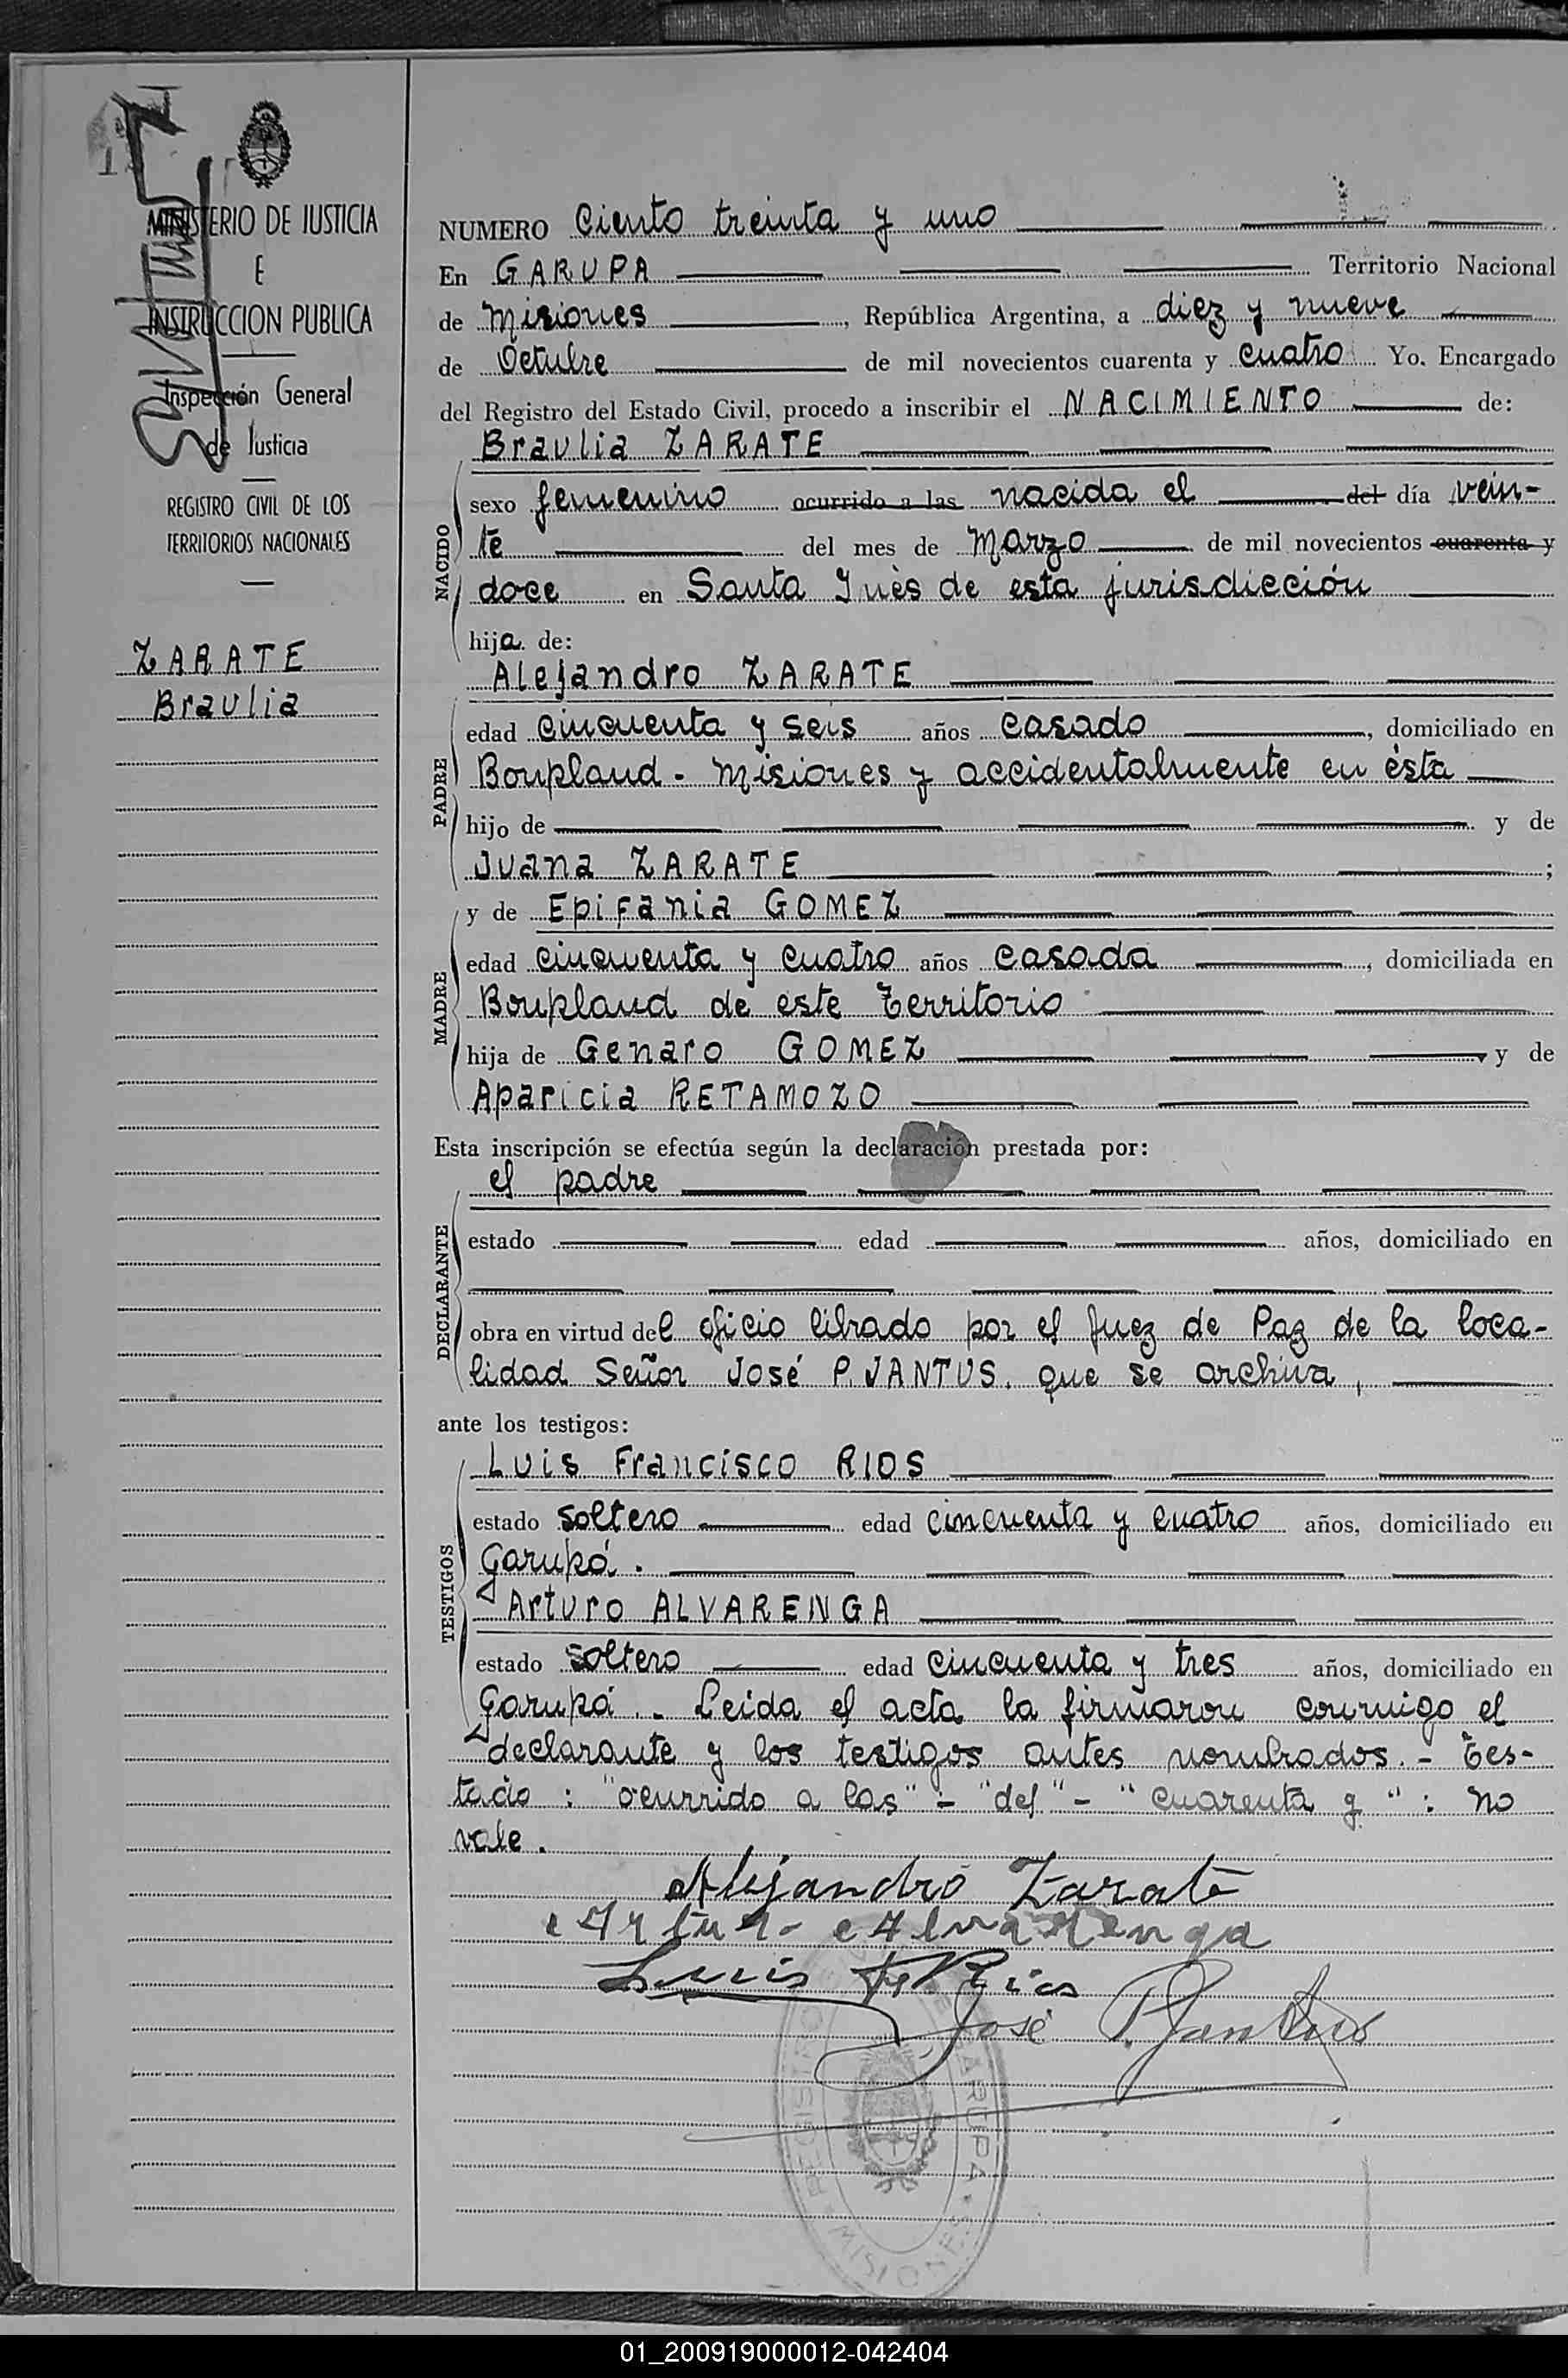 MINISTERIO DE JUSTICIA
E
INSTRUCCION PUBLICA
Inspección General
de Justicia
REGISTRO CIVIL DE LOS
TERRITORIOS NACIONALES
ZARATE
Braulia
NUMERO Ciento treinta y uno
En GARUPA Territorio Nacional
de Misiones, República Argentina, a diez y nueve
de Octubre de mil novecientos cuarenta y cuatro Yo, Encargado
del Registro del Estado Civil, procedo a inscribir el NACIMIENTO de:
Braulia ZARATE
NACIDO
sexo femenino ocurrido a las nacida el del día vein-
te del mes de Marzo de mil novecientos cuarenta y
doce en Santa Inès de esta jurisdicción
hija de:
Alejandro ZARATE
PADRE
edad cincuenta y seis años casado, domiciliado en
Bonpland - Misiones y accidentalmente en ésta
hijo de y de
Juana ZARATE ;
MADRE
y de Epifania GOMEZ
edad cincuenta y cuatro años casada, domiciliada en
Bonpland de este Territorio
hija de Genaro GOMEZ y de
Aparicia RETAMOZO
Esta inscripción se efectúa según la declaración prestada por:
el padre
DECLARANTE
estado edad años, domiciliado en
obra en virtud del oficio librado por el Juez de Paz de la loca-
lidad Señor José P. JANTUS. que se archiva,
ante los testigos:
TESTIGOS
Luis Francisco RIOS
estado soltero edad cincuenta y cuatro años, domiciliado en
Garupá.
Arturo ALVARENGA
estado soltero edad cincuenta y tres años, domiciliado en
Garupá. - Leida el acta la firmaron conmigo el
declarante y los testigos antes nombrados. - Tes-
tado: "ocurrido a las" - "del" - "cuarenta y": no
vale.
Alejandro Zarate
Arturo Alvarenga
Luis F. Rios
José P. Jantus
GARUPA
MISIONES
01_200919000012-042404